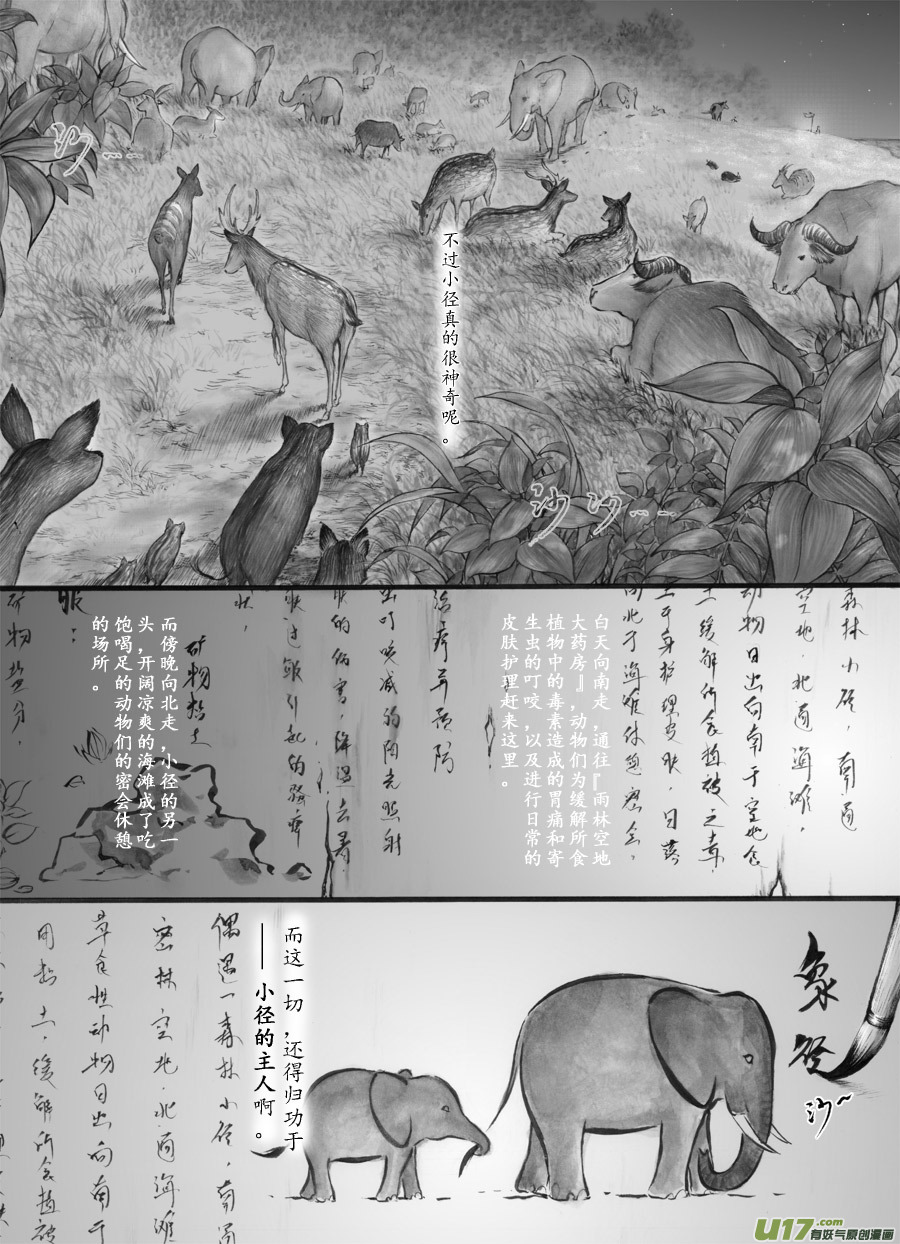 沙~~
不过小径真的很神奇呢。
沙沙~~
白天向南走，通往『雨林空地
大药房』，动物们为缓解所食
植物中的毒素造成的胃痛和寄
生虫的叮咬，以及进行日常的
皮肤护理赶来这里。
而傍晚向北走，小径的另一
头，开阔凉爽的海滩成了吃
饱喝足的动物们的密会休憩
的场所。
森林小径，南通
空地·北通海滩，
动物日出向南于空地食
土缓解所食植被之毒
日落
向北于海滩休憩密会，
治疗并预防
虫叮咬减弱阳光照射
矿物粘土
象径
沙~
而这一切，还得归功于
——小径的主人啊。
偶遇一森林小径，南通
密林空地·北通海滩
草食性动物日出向南于
用粘土，缓解所食植被
U17.com
有妖气原创漫画